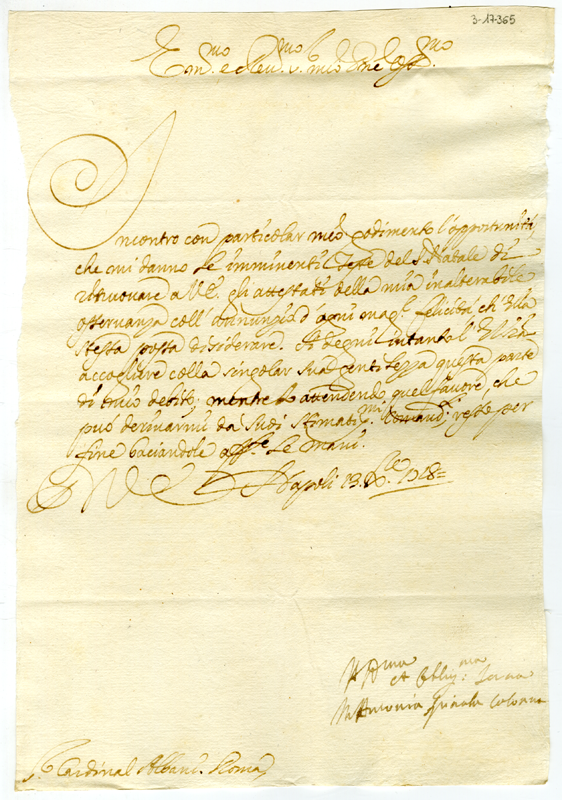 3-17-365
Em.mo e Rev.mo Sig.r mio Oss.mo
Incontro con particolar mio godimento l'opportunità,
che mi danno le imminenti Feste del S. Natale di
rinovare a V.E. gli attestati della mia inalterabile
osservanza coll'annunzio d'ogni mag.r felicità, ch'Ella
stessa possa desiderare. Si degni intanto l'E.V. di
accogliere colla singolar sua gentilezza questa parte
di mio debito; mentre io attendendo quel favore, che
può derivarmi da suoi stimatis.mi comandi, resto per
fine baciandole aff.te le mani.
Napoli 13 Xbre 1718=
Aff.ma et Oblig.ma Serva
M Antonia Spinola Colonna
S. Cardinal Albani. Roma